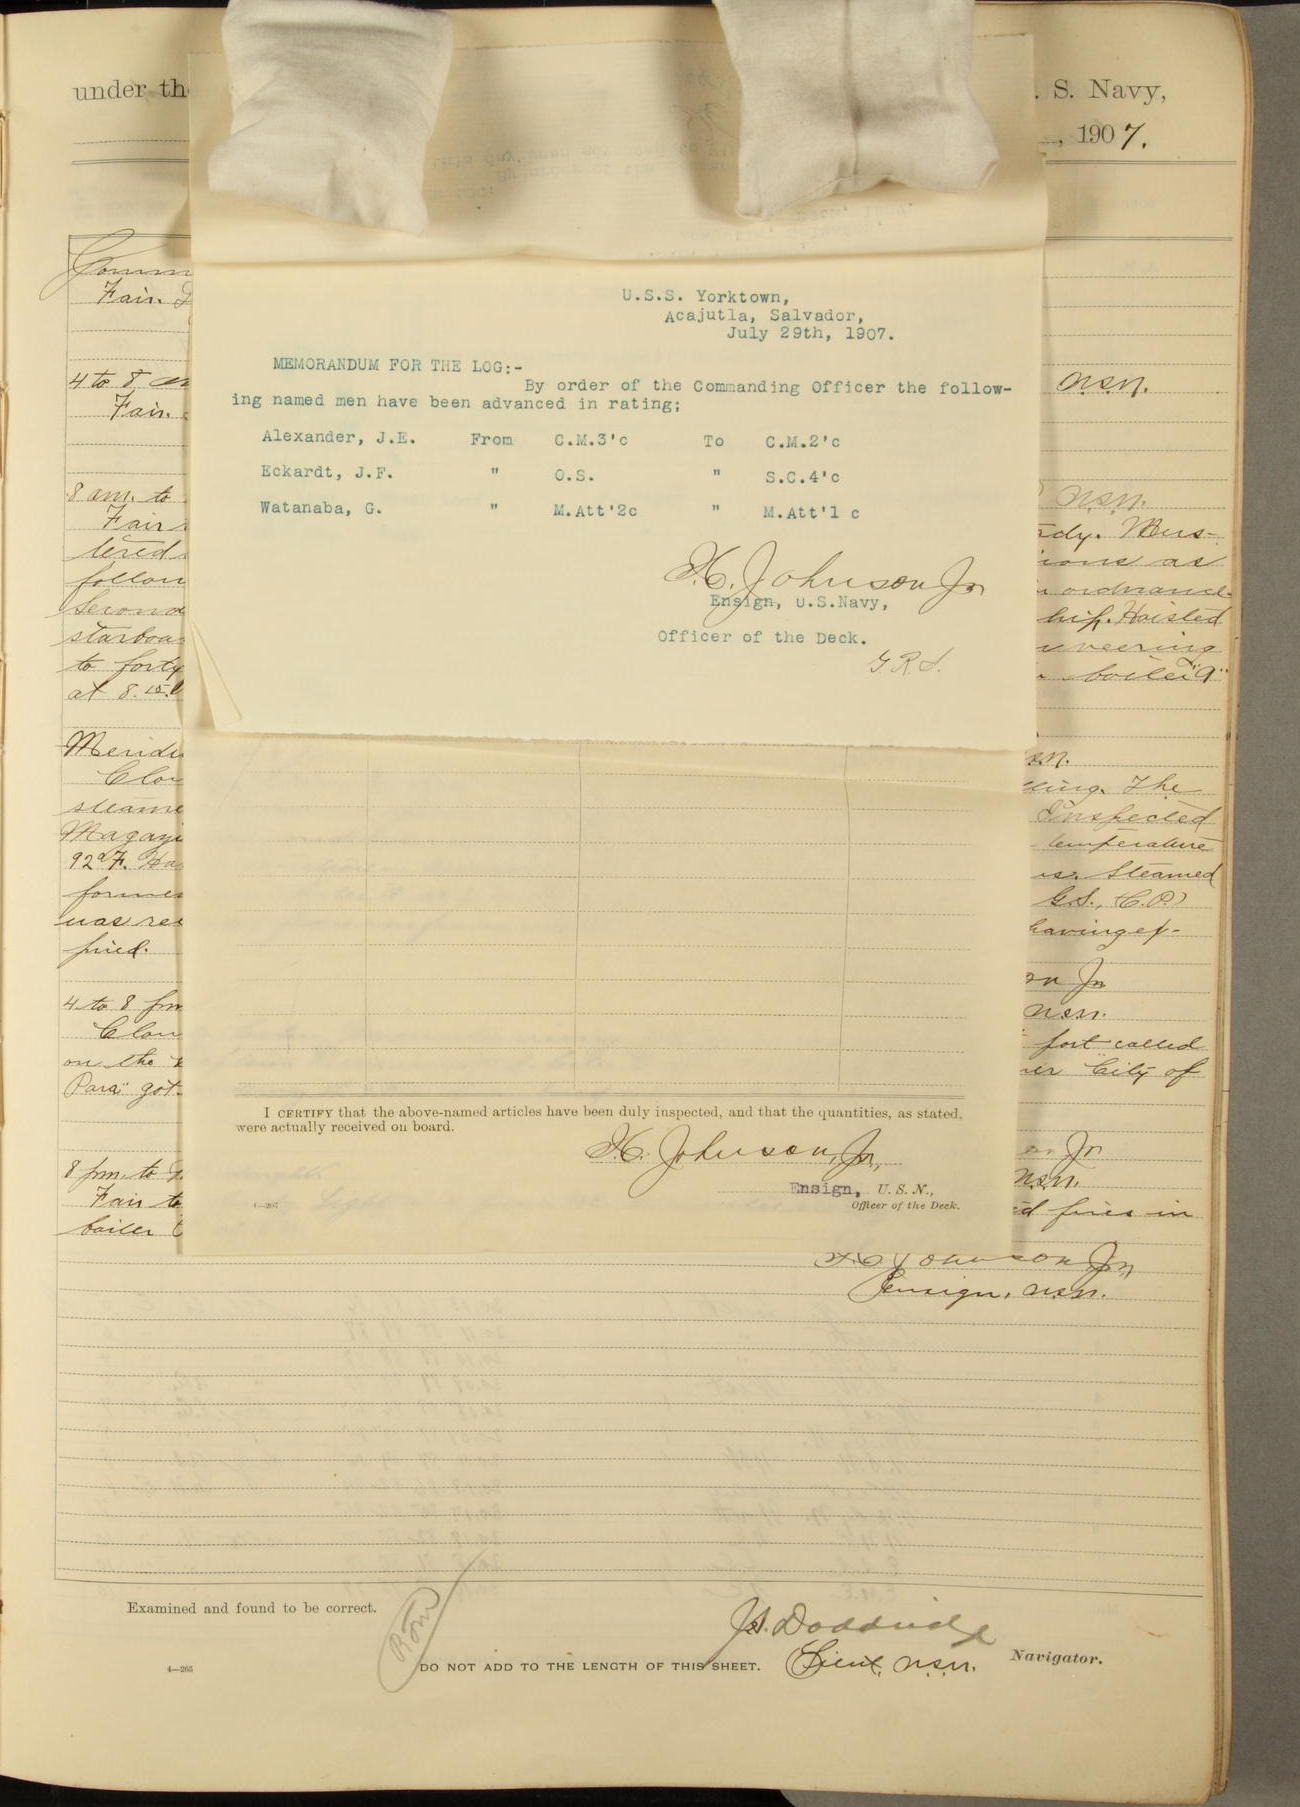 under th
. S. Navy,
, 1907.
Comm
Fair.
4 to 8 am
U.S.N.
Fair.
8 am. to
U.S.N.
Fair
ady. Mus-
tered
ions as
follow
ordnance
Second
ship. Hoisted
starboa
uveering
to forty
boiler "G"
at 8.15
Meridi
s.n.
Clou
lling. The
steame
Inspected
Magazi
temperature
92° F. Ha
is. Steamed
former
G.S., C.P.)
was re
having ex-
pired.
on Jr
4 to 8 pm
U.S.N.
Clou
port called
on the
er "City of
Para" got
8 pm. to
on Jr
Fair to
U.S.N.
boiler
ed fires in
U.S.S. Yorktown,
Acajutla, Salvador,
July 29th, 1907.
MEMORANDUM FOR THE LOG:-
By order of the Commanding Officer the follow-
ing named men have been advanced in rating;
Alexander, J.E. From C.M.3'c To C.M.2'c
Eckardt, J.F. " O.S. " S.C.4'c
Watanaba, G. " M.Att'2c " M.Att'1 c
H. Johnson Jr
Ensign, U.S.Navy,
Officer of the Deck.
G.R.S.
I CERTIFY that the above-named articles have been duly inspected, and that the quantities, as stated,
were actually received on board.
H. Johnson, Jr.,
Ensign, U. S. N.,
4—207
Officer of the Deck.
H. Johnson Jr,
Ensign, U.S.N.
Examined and found to be correct.
J.S. Doddridge
Lieut, U.S.N. Navigator.
4—265
DO NOT ADD TO THE LENGTH OF THIS SHEET.